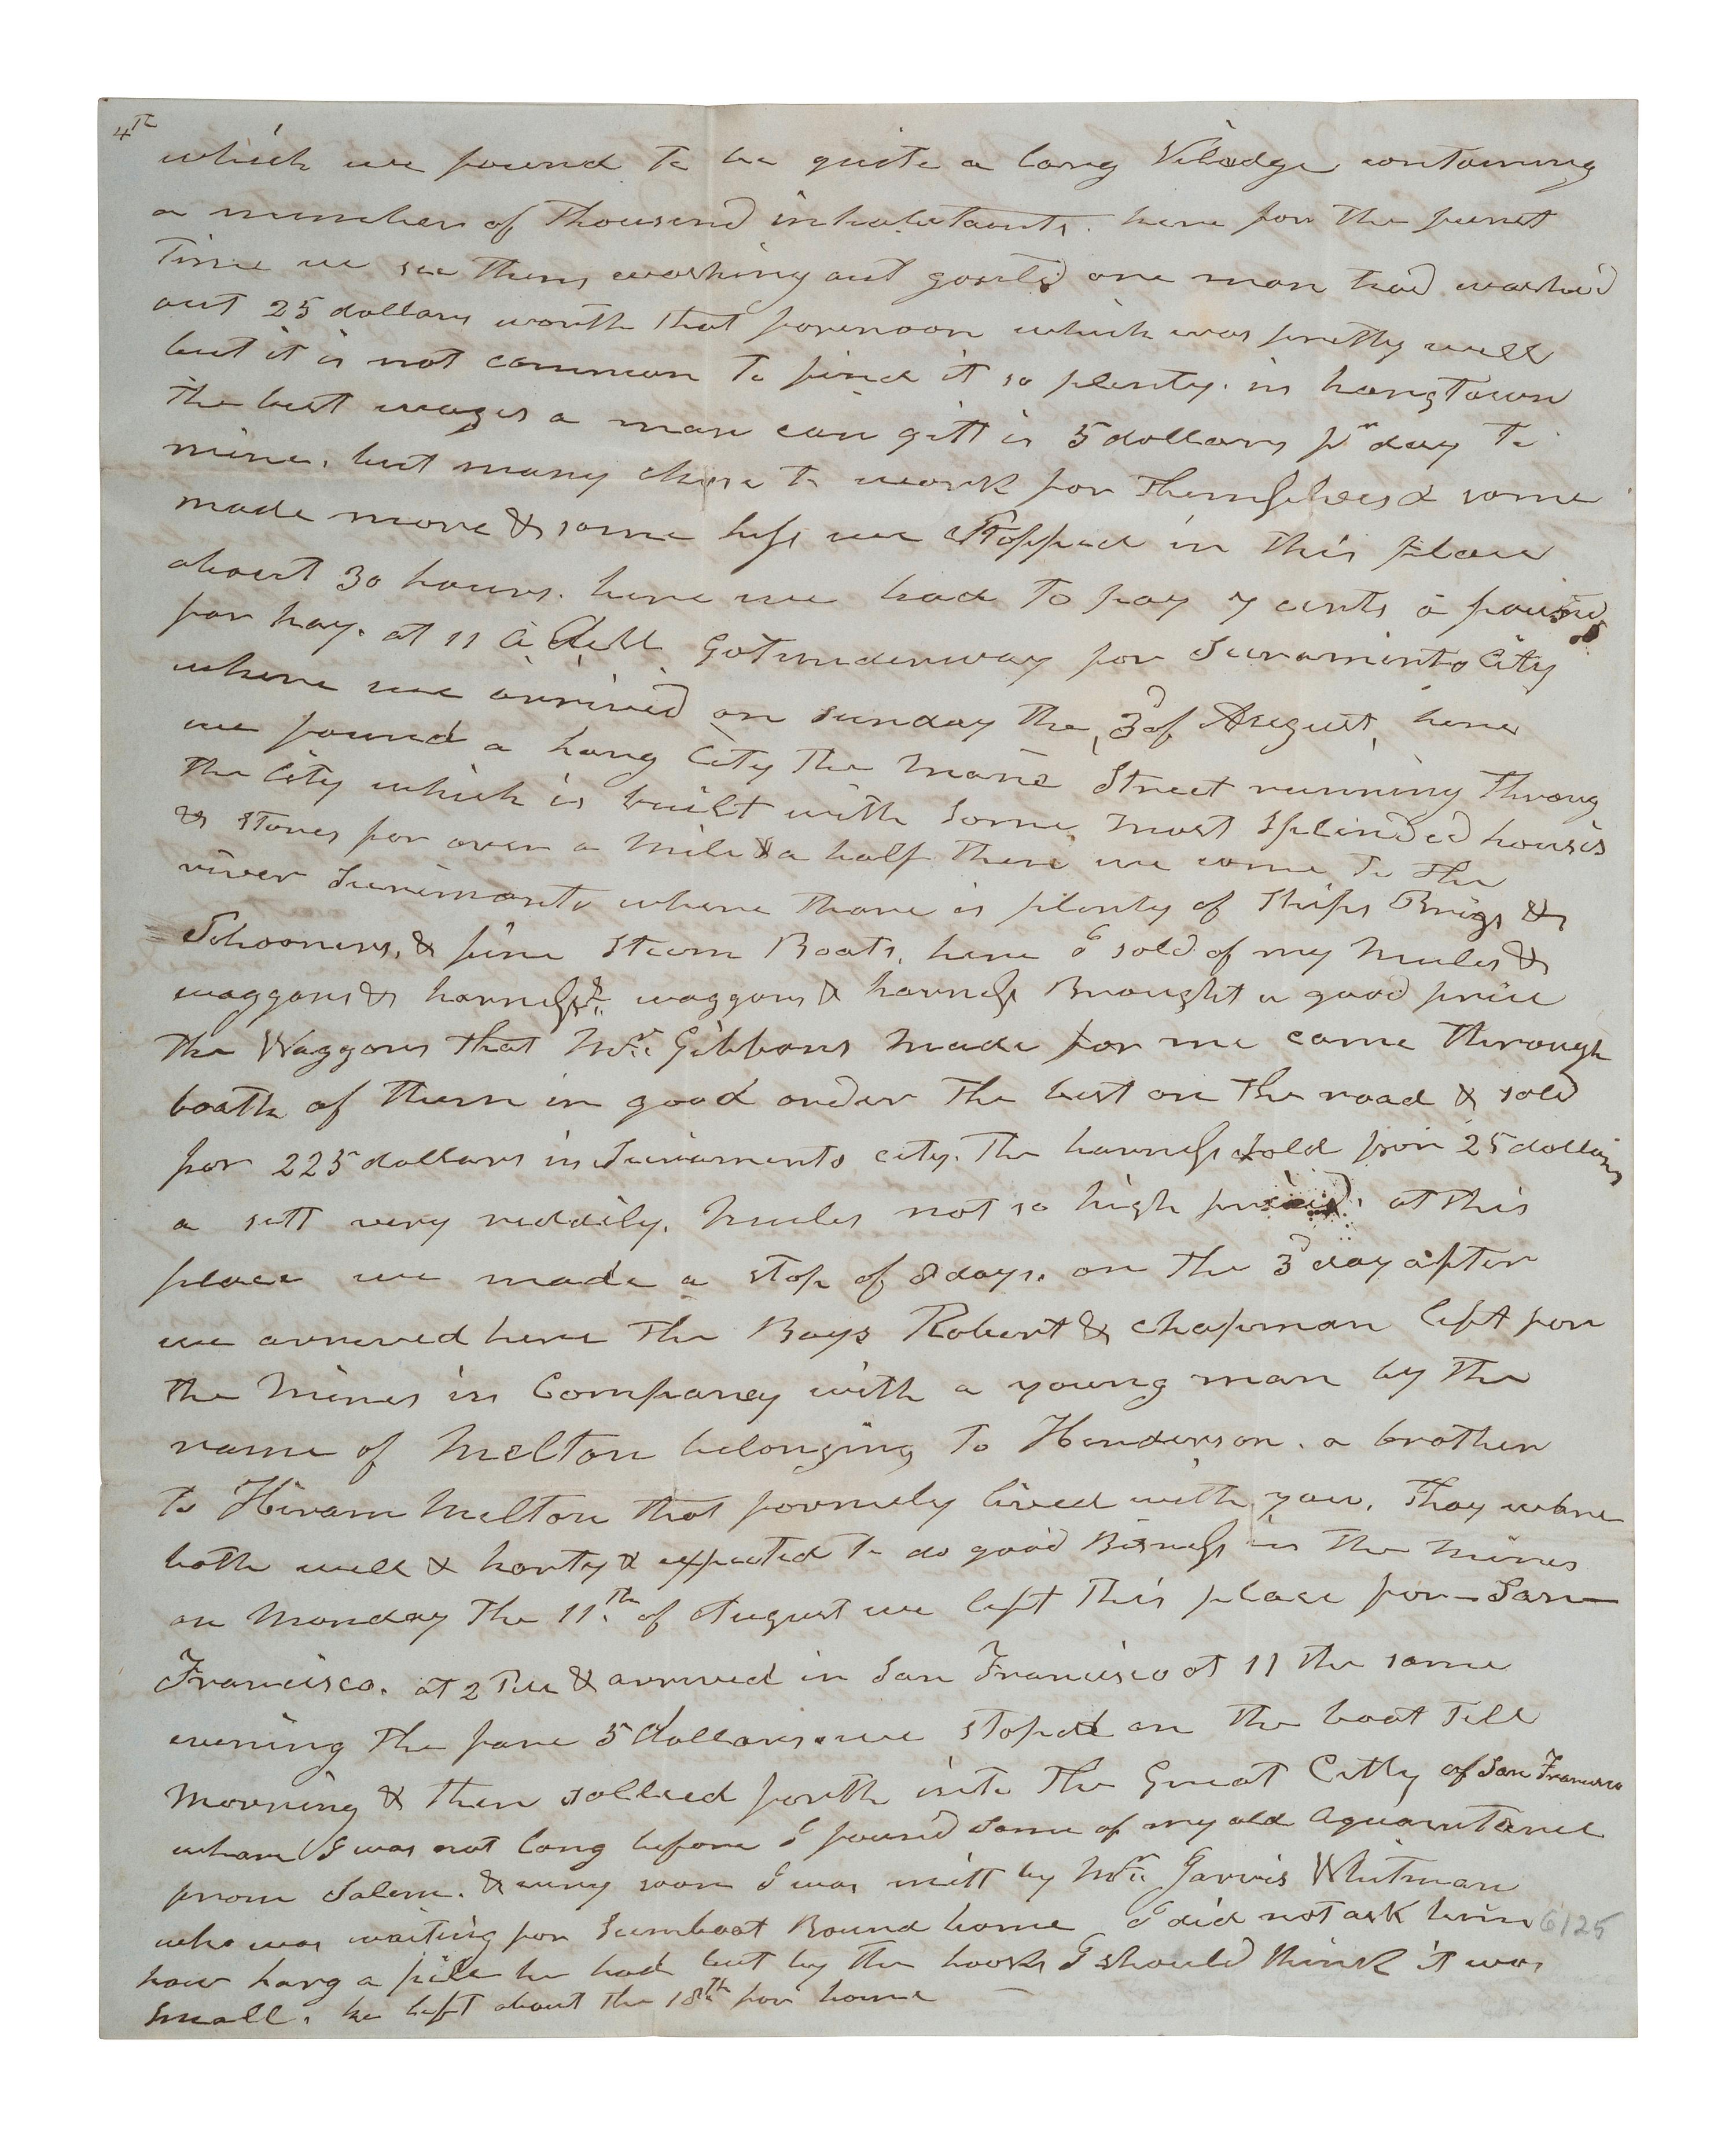 4th
which we found to be quite a larg Viladge containing
a number of Thousend inhabetants. here for the furst
Time we see them washing out gould one man had washed
out 25 dollars worth that forenoon which was pretty well
but it is not common to find it so plenty. in hangTown
the best wages a man can gitt is 5 dollars pr day to
mine. but many chose to work for themselves & some
made more & some less we stopped in this place
about 30 hours. here we had to pay 7 cents a pound
for hay. at 11 Gotunderway for Sacramento City
where we arrived on sunday the 3d of August, here
we found a larg City the mane Street running throug
the City which is built with some most splended houses
& stores for over a mile & a half then we come to the
river where thare is plenty of Ships Brigs &
Schooners, & fine Steam Boats, here I sold of my mules &
waggons & harness. waggons & harness Brought a good price
the Waggons that Mr Gibbons made for me came through
boath of them in good order the best on the road & sold
for 225 dollars in Sacramento city. the harness sold for 25 dollars
a sett very reddily. mules not so high at this
place we made a stop of 8 days. on the 3d day after
we arrived here the Boys Robert & Chapman left for
the mines in Company with a young man by the
name of Melton belonging to Henderson. a brother
to Hiram Melton that formely lived with you. Thay ware
both well & harty & expected to do good Bisness in the mines
on Monday the 11th of August we left this place for San
Francisco. at 2 & arrived in San Francisco at 11 the same
evening the fare 5 dollars. we stoped on the boat till
morning & then sallied forth into the Great Citty of San Francisco
whare I was not long before I found some of my old aquaintance
from Salem. & very soon I was mitt by Mr Jarvis Whitman
who was waiting for Bound home I did not ask him
6125
how larg a pile he had but by the looks I should think it was
small. he left about the 18th for home